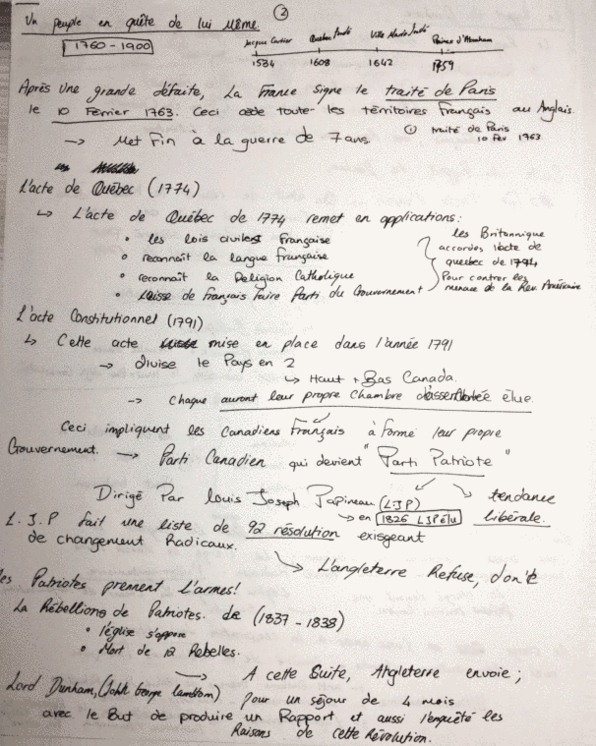 ②
Un peuple en quête de lui même
1760-1900
Jacques Cartier Québec Fondé Ville Marie Fondé Plaines d'Abraham
1534 1608 1642 1759
Après une grande défaite, La France signe le traité de Paris
le 10 Février 1763. Ceci cède toute les térritoires Français au Anglais.
→ Met Fin à la guerre de 7 ans
① traité de Paris
10 Fev 1763
L'acte de Québec (1774)
↳ L'acte de Québec de 1774 remet en applications:
• les lois civiles Française
• reconnaît la langue française
• reconnaît la Religion Catholique
• Laisse de français faire Parti du Gouvernement
les Britannique
accordes l'acte de
quebec de 1774
Pour contrer les
menace de la Rev. Américaine
L'acte Constitutionnel (1791)
↳ Cette acte mise en place dans l'année 1791
→ divise le Pays en 2
↳ Haut + Bas Canada.
→ Chaque auront leur propre Chambre d'assemblée élue
Ceci impliquent les Canadiens Français à formé leur propre
Gouvernement. → Parti Canadien qui devient "Parti Patriote"
Dirigé Par Louis Joseph Papineau (LJP)
→ en 1826 LJP élu
tendance
libérale.
L.J.P fait une liste de 92 résolution exisgeant
de changement Radicaux.
→ L'angleterre Refuse, don't
les Patriotes prennent L'armes!
La Rébellions de Patriotes. de (1837-1838)
• l'église s'oppose
• Mort de 12 Rebelles.
→ A cette Suite, Angleterre envoie;
Lord Dunham, (John George lambtom) Pour un séjour de 4 mois
avec le But de produire un Rapport et aussi l'enquêté les
Raisons de cette Révolution.